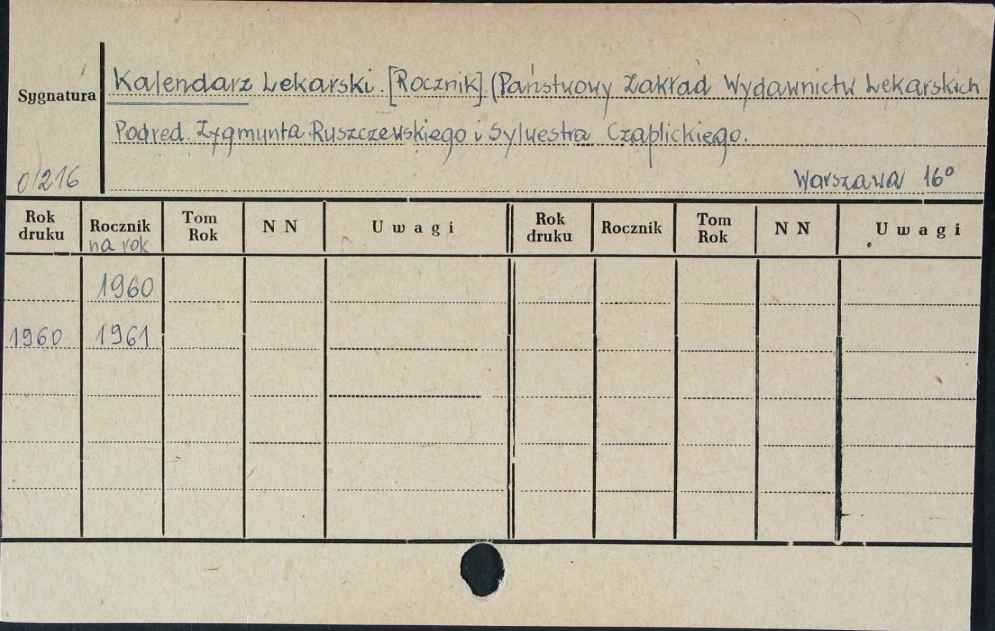 Sygnatura
Kalendarz Lekarski. [Rocznik]. (Państwowy Zakład Wydawnictw Lekarskich
Pod red. Zygmunta Ruszczewskiego i Sylwestra Czaplickiego.
0/216
Warszawa 16°
Rok druku Rocznik na rok Tom Rok N N Uwagi Rok druku Rocznik Tom Rok N N Uwagi
1960
1960 1961